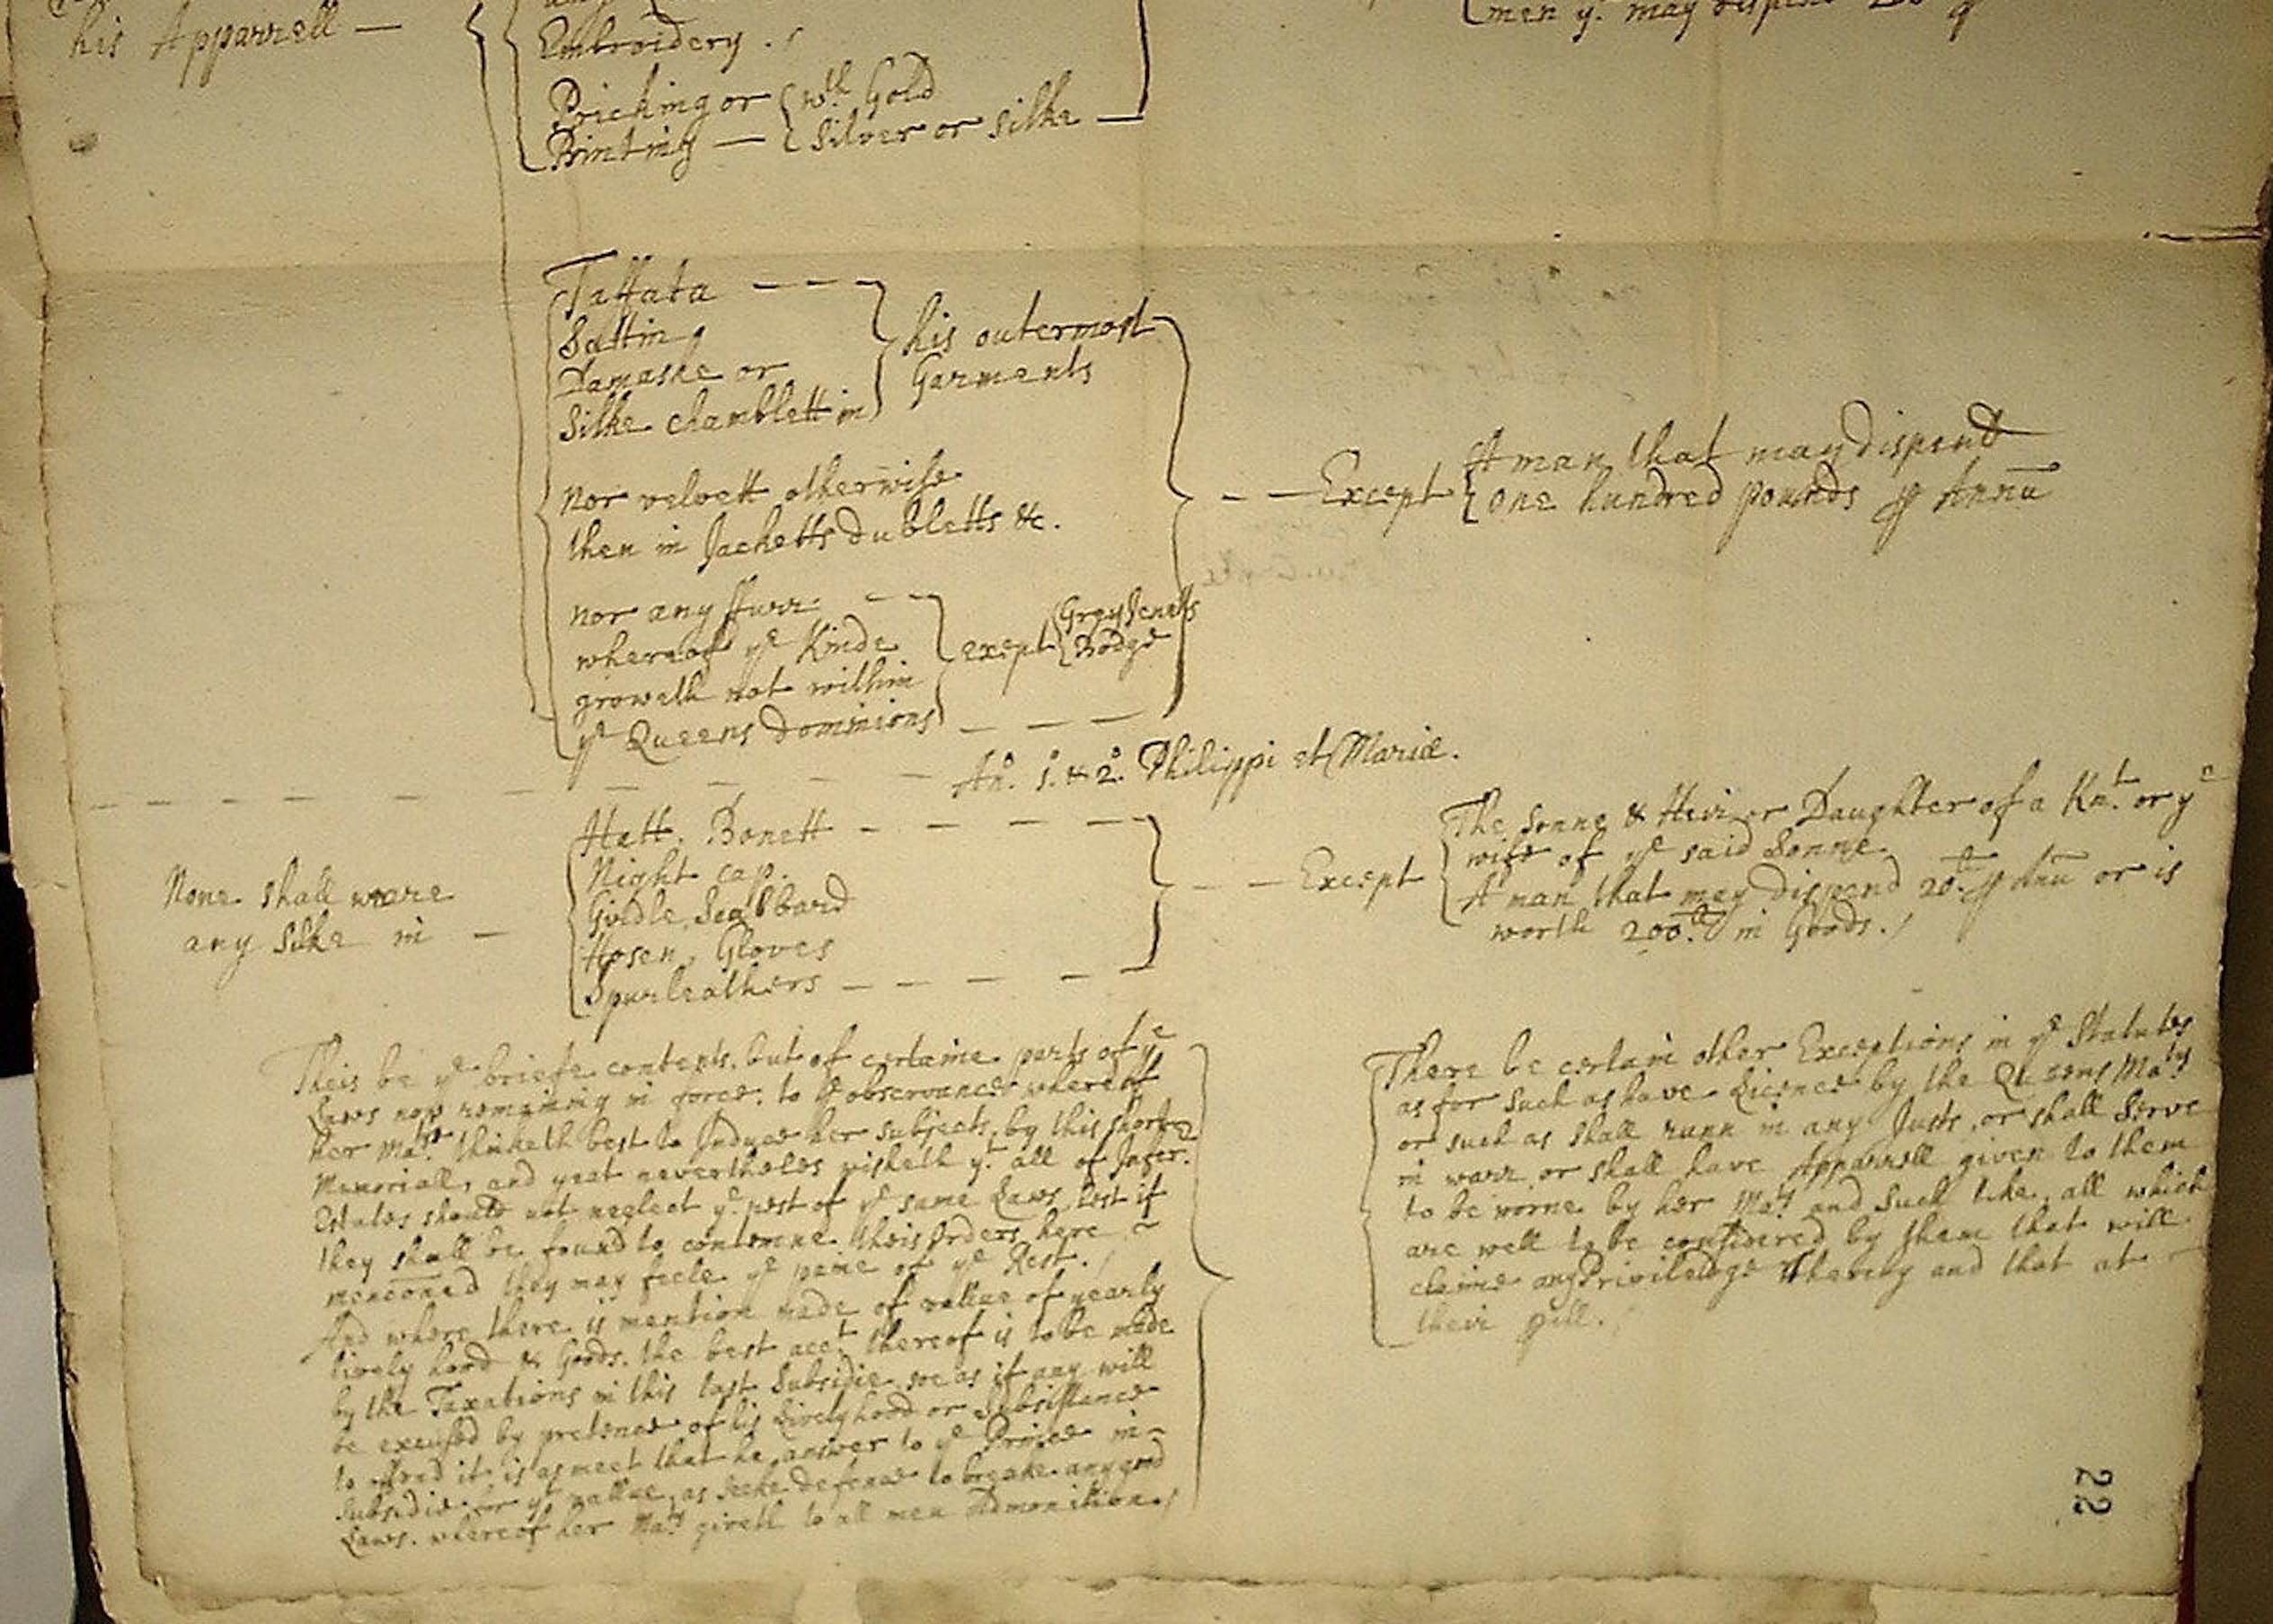 his Apparrell —
Embroidery.
Pricking or
Printing —
wth Gold
Silver or silke —
men yt may dispend 200
Taffata — — —
Sattin
Damaske or
Silke chamblett in
his outermost
Garments
nor velvett otherwise
then in Jacketts dubletts &c.
nor any ffurr — —
whereof ye Kinde
groweth not within
ye Queens dominions
except
Grey Jenetts
Bodge
— — Except
A man that may dispend
one hundred pounds p Annū
Ano. 1o. & 2o. Philippi et Mariæ.
None shall weare
any Silke in —
Hatt. Bonett — — — —
Night cap.
Girdle, Scabbard
Hosen, Gloves
Spurleathers — — — —
— — Except
The Sonne & Heir or Daughter of a Knt. or ye
wife of ye said Sonne
A man that may dispend 20.li p Anū or is
worth 200.li in Goods.
Theis be ye briefe contents. but of certaine parts of ye
Lawes now remaining in force. to ye observance whereof
her Maty. thinketh best to Induce her subjects, by this shorte
Memoriall, and yeat nevertheles wisheth yt. all of Infer.
Estates should not neglect ye rest of ye same Laws, lest if
they shall be found to contemne theis Orders here ~
mencōned they may feele ye paine of ye Rest.
And where there is mention made of vallue of yearly
lively hood & Goods. the best acct. thereof is to be made
by the Taxations in this last Subsidie soe as if any will
be excused by pretence of his Livelyhood or Subsistance
to offend it is as meet that he answer to ye Prince in-
Subsidie for yt vallue, as seeke defence to breake any good
Laws. whereof her Maty giveth to all men Admonition.
There be certain other Exceptions in ye Statutes
as for such as have Licence by the Queens Maty
or such as shall runn in any Justs, or shall Serve
in warr, or shall have Apparrell given to them
to be worne by her Maty and such like, all which
are well to be considered by them that will
claime any Priviledge thereby and that at
their pill.
22